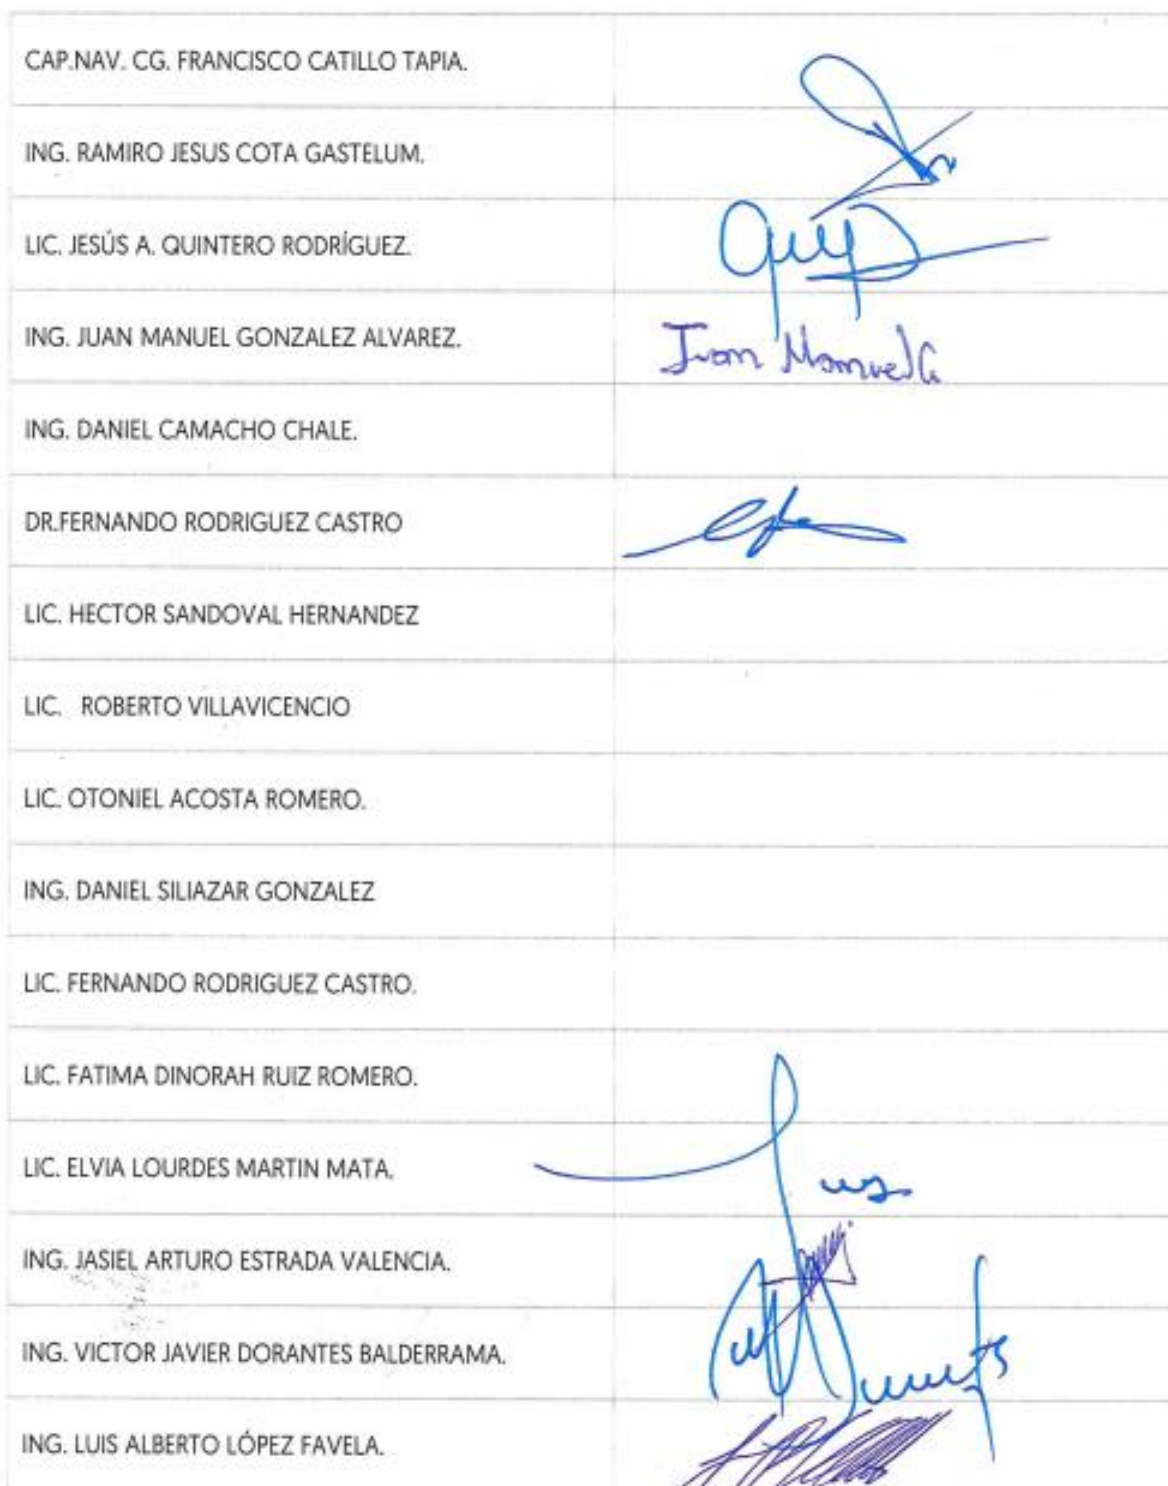 CAP.NAV. CG. FRANCISCO CATILLO TAPIA.
ING. RAMIRO JESUS COTA GASTELUM.
LIC. JESÚS A. QUINTERO RODRÍGUEZ.
ING. JUAN MANUEL GONZALEZ ALVAREZ.
Juan Manuel G
ING. DANIEL CAMACHO CHALE.
DR.FERNANDO RODRIGUEZ CASTRO
LIC. HECTOR SANDOVAL HERNANDEZ
LIC. ROBERTO VILLAVICENCIO
LIC. OTONIEL ACOSTA ROMERO.
ING. DANIEL SILIAZAR GONZALEZ
LIC. FERNANDO RODRIGUEZ CASTRO.
LIC. FATIMA DINORAH RUIZ ROMERO.
LIC. ELVIA LOURDES MARTIN MATA.
ING. JASIEL ARTURO ESTRADA VALENCIA.
ING. VICTOR JAVIER DORANTES BALDERRAMA.
ING. LUIS ALBERTO LÓPEZ FAVELA.